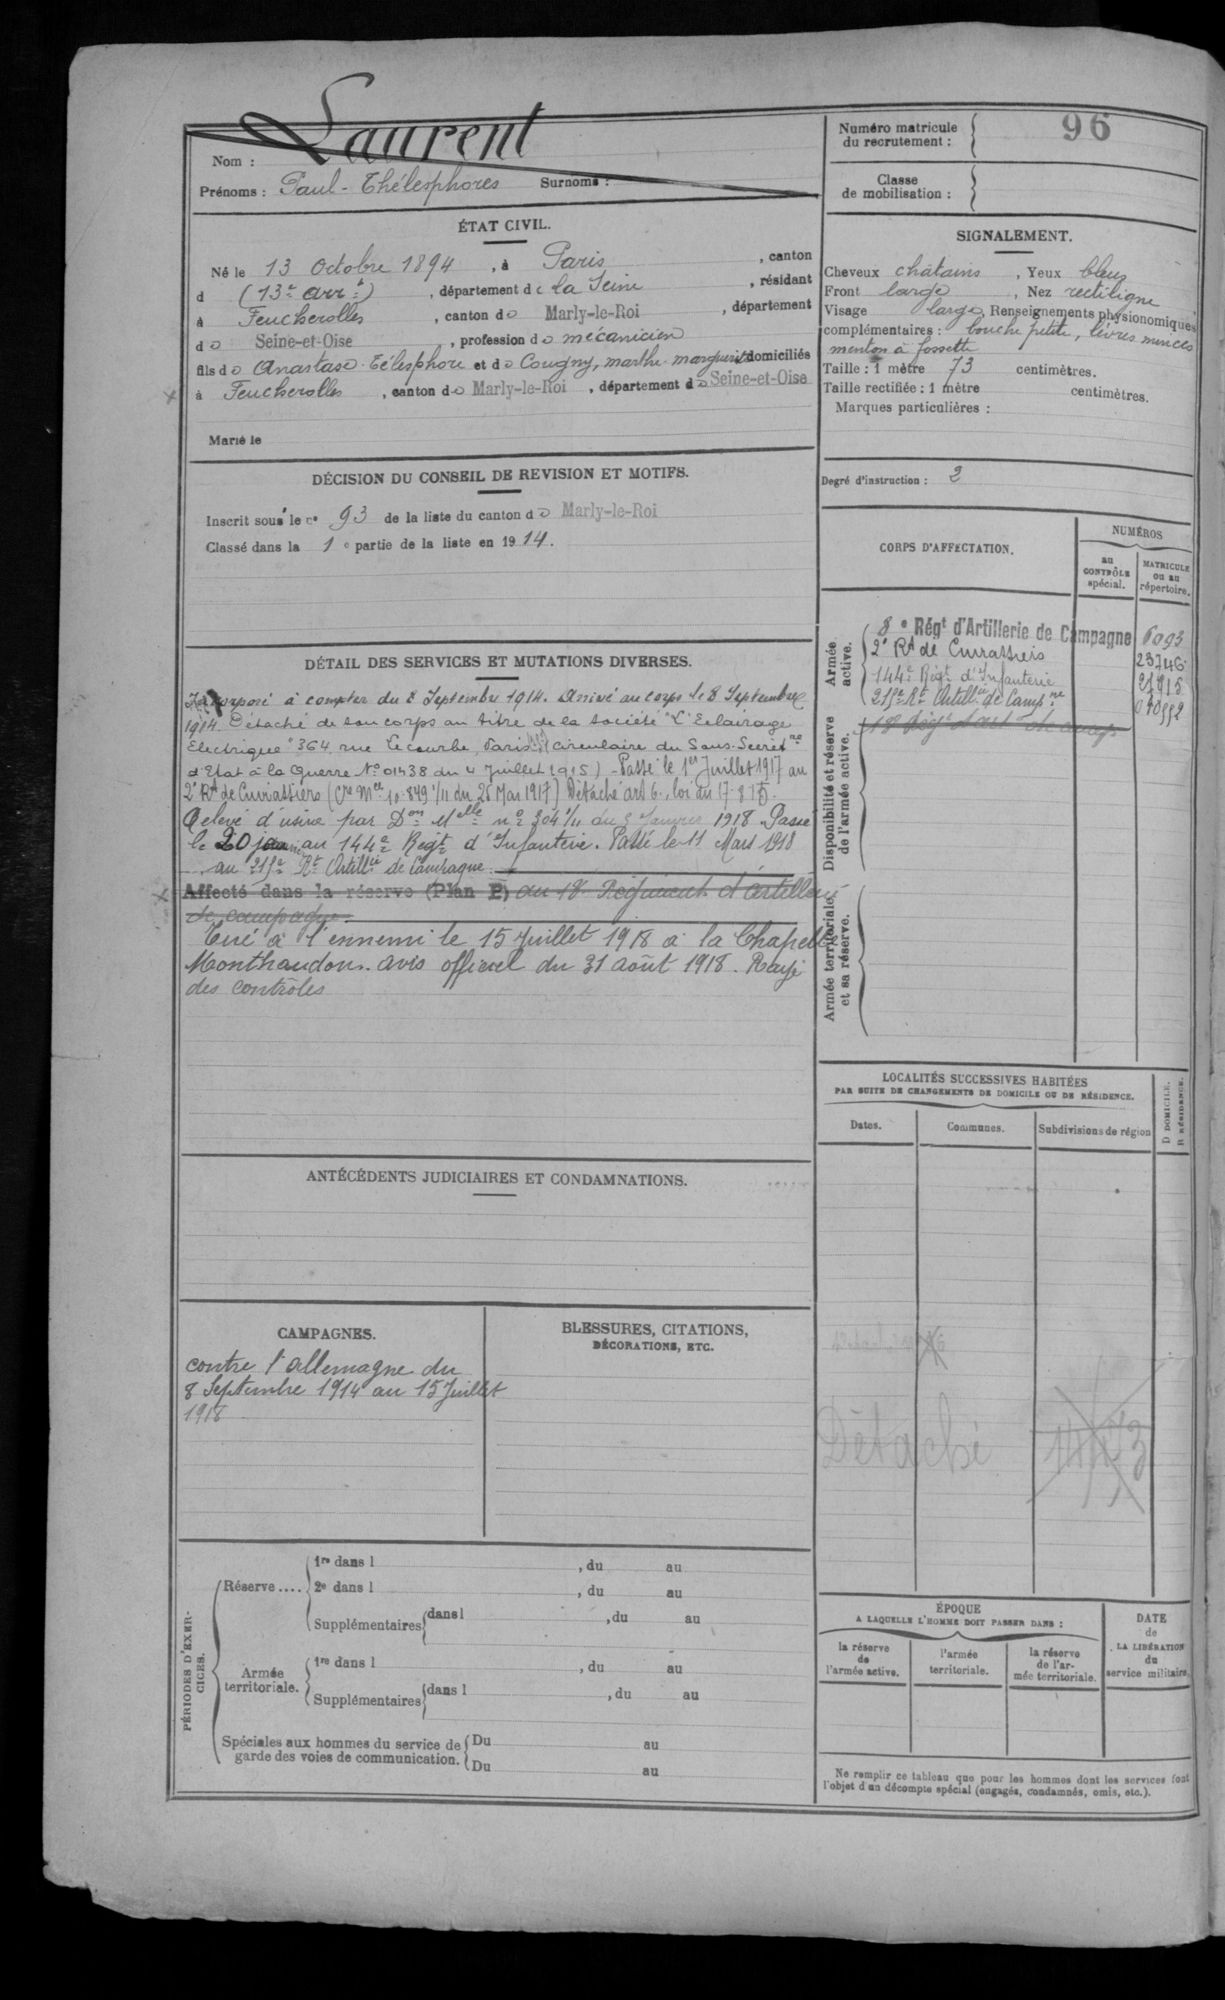 Laurent
Nom :
Prénoms : Paul-Thélesphores Surnoms :
ÉTAT CIVIL.
Né le 13 Octobre 1894, à Paris, canton
d (13e arrt), département de la Seine, résidant
à Feucherolles, canton de Marly-le-Roi, département
de Seine-et-Oise, profession de mécanicien
fils de Anastase Télesphore et de Cougny, marthe marguerite domiciliés
à Feucherolles, canton de Marly-le-Roi, département de Seine-et-Oise
Marié le
DÉCISION DU CONSEIL DE REVISION ET MOTIFS.
Inscrit sous le no 93 de la liste du canton de Marly-le-Roi
Classé dans la 1e partie de la liste en 1914.
DÉTAIL DES SERVICES ET MUTATIONS DIVERSES.
Incorporé à compter du 8 Septembre 1914. Arrivé au corps le 8 Septembre
1914. Détaché de son corps au titre de la Société "L'Eclairage
Electrique" 364 rue Lecourbe Paris (circulaire du Sous-Secrétre
d'Etat à la Guerre No 01438 du 4 Juillet 1915) - Passé le 1er Juillet 1917 au
2e Rt de Cuirassiers (Cre Mlle 10.849 1/11 du 26 Mai 1917) Détaché art 6, loi du 17-8-15.
Relevé d'usine par Don Mlle no 304 1/11 du 5 Janvier 1918. Passé
le 20 jan au 144e Regt d'Infanterie. Passé le 11 Mars 1918
au 215e Rt Artillie de Campagne
Affecté dans la réserve (Plan P) au 18e Régiment d'Artillerie
de campagne.
Tué à l'ennemi le 15 Juillet 1918 à la Chapelle
Monthaudon. avis officiel du 31 août 1918. Rayé
des contrôles
ANTÉCÉDENTS JUDICIAIRES ET CONDAMNATIONS.
CAMPAGNES.
contre l'allemagne du
8 Septembre 1914 au 15 Juillet
1918
BLESSURES, CITATIONS,
DÉCORATIONS, ETC.
PÉRIODES D'EXER-
CICES.
Réserve....
1re dans l , du au
2e dans l , du au
Supplémentaires dans l , du au
Armée
territoriale.
1re dans l , du au
Supplémentaires dans l , du au
Spéciales aux hommes du service de
garde des voies de communication.
Du au
Du au
Numéro matricule
du recrutement :
96
Classe
de mobilisation :
SIGNALEMENT.
Cheveux châtains, Yeux bleus
Front large, Nez rectiligne
Visage large, Renseignements physionomiques
complémentaires : bouche petite, lèvres minces
menton à fossette
Taille : 1 mètre 73 centimètres.
Taille rectifiée : 1 mètre centimètres.
Marques particulières :
Degré d'instruction : 2
CORPS D'AFFECTATION.
NUMÉROS
au
CONTRÔLE
spécial.
MATRICULE
ou au
répertoire.
Armée
active.
8e Régt d'Artillerie de Campagne 6093
2e Rt de Cuirassiers 23746
144e Régt d'Infanterie
215e Rt Artillie de Campne
Disponibilité et réserve
de l'armée active.
18e Régt d'art de camp
Armée territoriale
et sa réserve.
LOCALITÉS SUCCESSIVES HABITÉES
PAR SUITE DE CHANGEMENTS DE DOMICILE OU DE RÉSIDENCE.
D DOMICILE.
R RÉSIDENCE.
Dates.
Communes.
Subdivisions de région
Détaché
ÉPOQUE
A LAQUELLE L'HOMME DOIT PASSER DANS :
la réserve
de
l'armée active.
l'armée
territoriale.
la réserve
de l'ar-
mée territoriale.
DATE
de
LA LIBÉRATION
du
service militaire.
Ne remplir ce tableau que pour les hommes dont les services font
l'objet d'un décompte spécial (engagés, condamnés, omis, etc.).